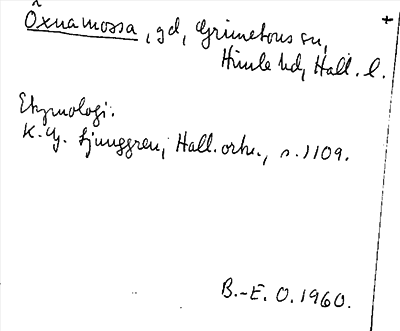 Öxnamossa, gd, Grimetons sn, +
Himle hd, Hall. l.
Etymologi:
K.G. Ljunggren, Hall. ortn., s. 1109.
B.-E. O. 1960.